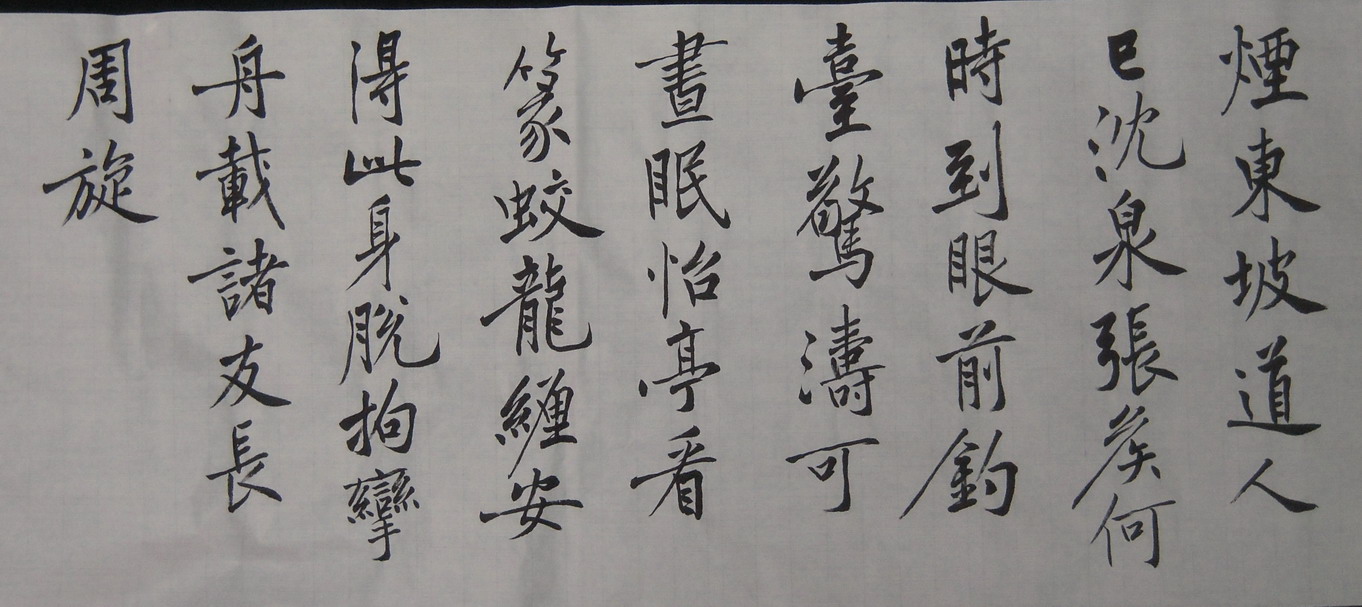 煙東坡道人
已沈泉張矦何
時到眼前釣
臺驚濤可
晝眠怡亭看
篆蛟龍纏安
得此身脫拘攣
舟載諸友長
周旋